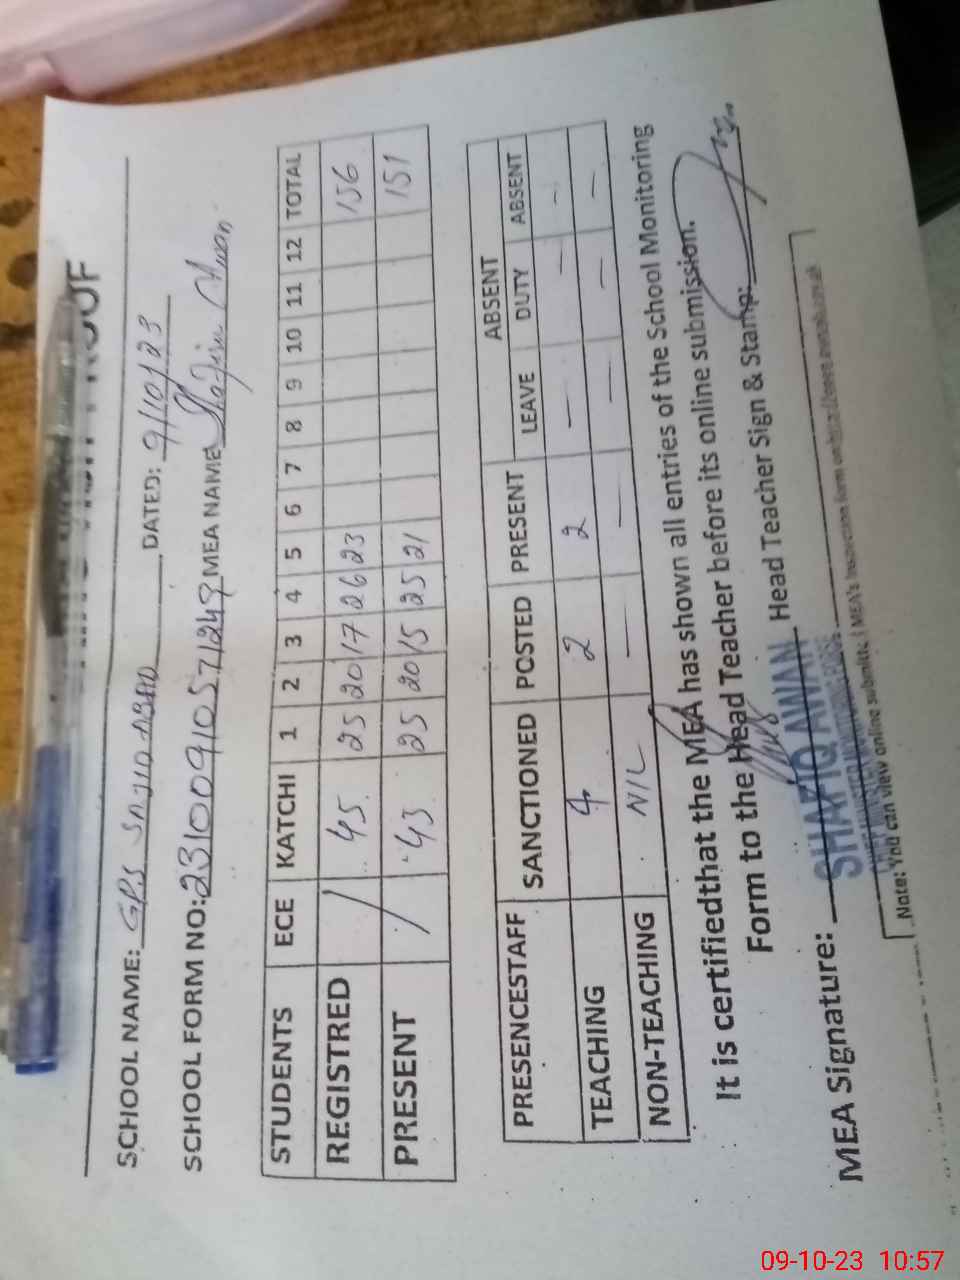 SCHOOL NAME: GPS SAJIDABAD DATED: 9/10/23
SCHOOL FORM NO: 23100910571249 MEA NAME Shafiq Awan
STUDENTS ECE KATCHI 1 2 3 4 5 6 7 8 9 10 11 12 TOTAL
REGISTRED / 45 25 20 17 26 23 156
PRESENT / 43 25 20 15 25 21 151
ABSENT
PRESENCESTAFF SANCTIONED POSTED PRESENT LEAVE DUTY ABSENT
TEACHING 4 2 2 — — —
NON-TEACHING NIL — — — — —
It is certifiedthat the MEA has shown all entries of the School Monitoring
Form to the Head Teacher before its online submission.
MEA Signature: Head Teacher Sign & Stamp:
SHAFIQ AWAN
Note: You can view online submitted MEA's
09-10-23 10:57